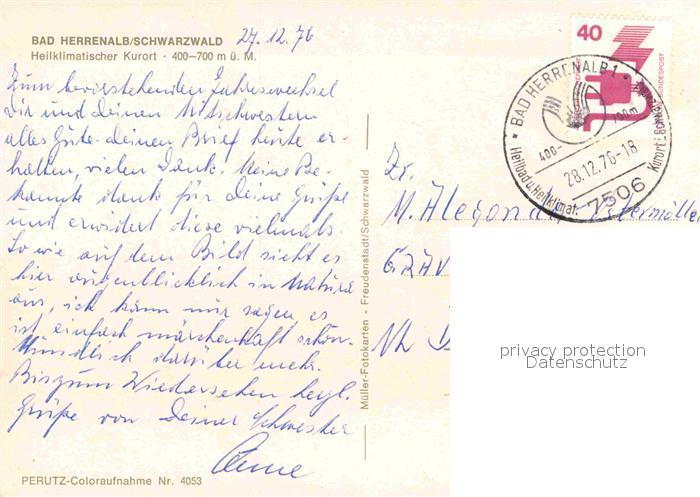 BAD HERRENALB/SCHWARZWALD 27.12.76
Heilklimatischer Kurort · 400–700 m ü. M.
Zum bevorstehenden Jahreswechsel
Dir und deinen Mitschwestern
alles Gute. Deinen Brief heute er-
halten, vielen Dank. Meine Be-
kannte dankt für Deine Grüße
und erwidert diese vielmals.
So wie auf dem Bild sieht es
hier augenblicklich in Natura
aus, ich kann nur sagen es
ist einfach märchenhaft schön.
Mündlich darüber mehr.
Bis zum Wiedersehen herzl.
Grüße von Deiner Schwester
PERUTZ-Coloraufnahme Nr. 4053
Müller-Fotokarten - Freudenstadt/Schwarzwald
40
BUNDESPOST
BAD HERRENALB 1
400- 700m
28.12.76-18
Heilbad u. Heilklimat. Kurort i. Schw.
7506
M.
privacy protection
Datenschutz